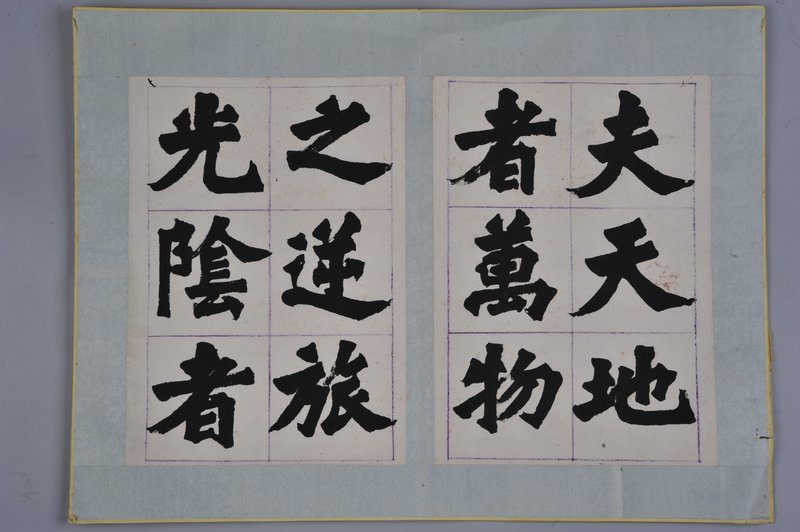 夫天地
者萬物
之逆旅
光陰者